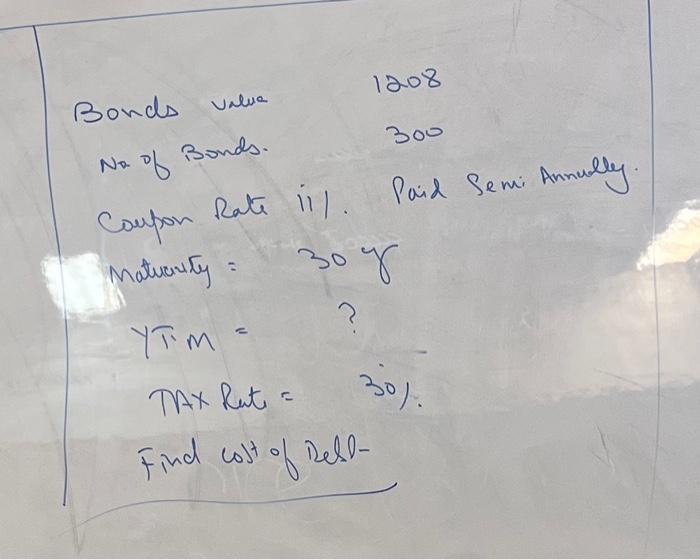 Bonds value 1208
No of Bonds. 300
Coupon Rate 11%. Paid Semi Annually.
Maturity = 30 Y
YTM = ?
TAX Rate = 30%.
Find cost of Debt